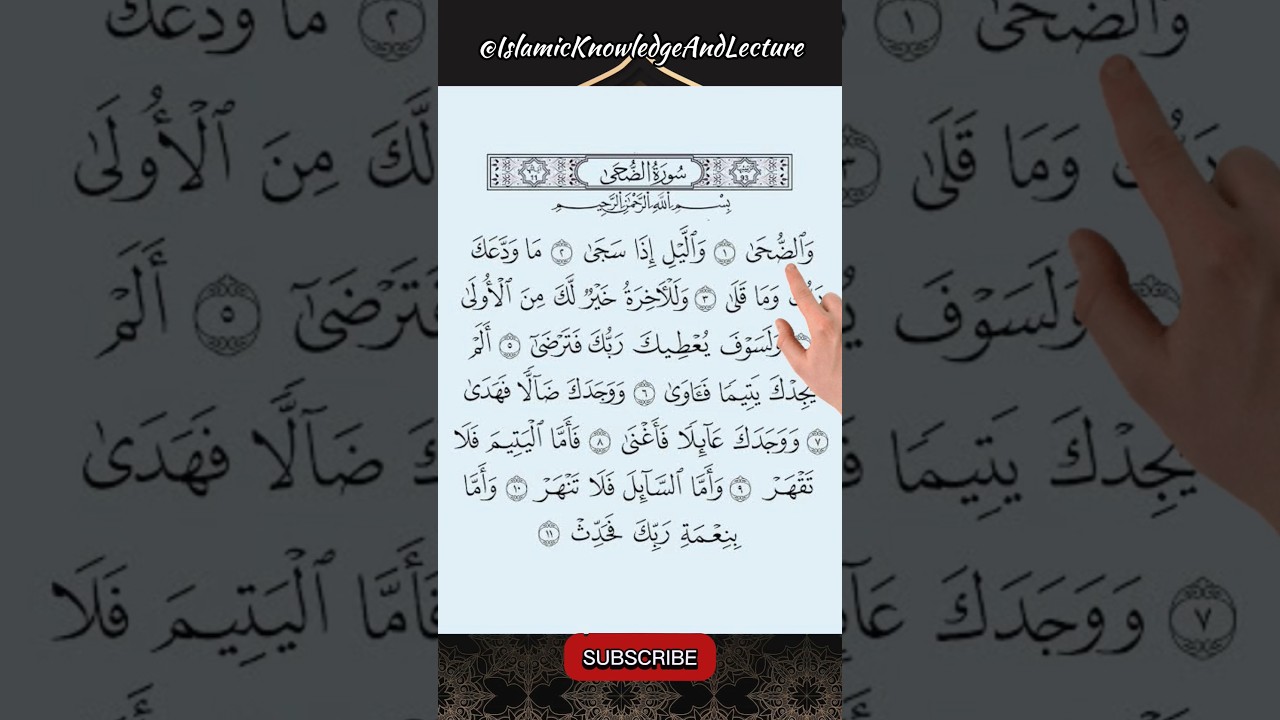 @IslamicKnowledgeAndLecture
سُورَةُ الضُّحَىٰ
بِسْمِ اللَّهِ الرَّحْمَٰنِ الرَّحِيمِ
وَٱلضُّحَىٰ ١ وَٱلَّيْلِ إِذَا سَجَىٰ ٢ مَا وَدَّعَكَ
وَمَا قَلَىٰ ٣ وَلَلْآخِرَةُ خَيْرٌ لَّكَ مِنَ ٱلْأُولَىٰ
وَلَسَوْفَ يُعْطِيكَ رَبُّكَ فَتَرْضَىٰٓ ٥ أَلَمْ
يَجِدْكَ يَتِيمًا فَـَٔاوَىٰ ٦ وَوَجَدَكَ ضَآلًّا فَهَدَىٰ
٧ وَوَجَدَكَ عَآئِلًا فَأَغْنَىٰ ٨ فَأَمَّا ٱلْيَتِيمَ فَلَا
تَقْهَرْ ٩ وَأَمَّا ٱلسَّآئِلَ فَلَا تَنْهَرْ ١٠ وَأَمَّا
بِنِعْمَةِ رَبِّكَ فَحَدِّثْ ١١
SUBSCRIBE